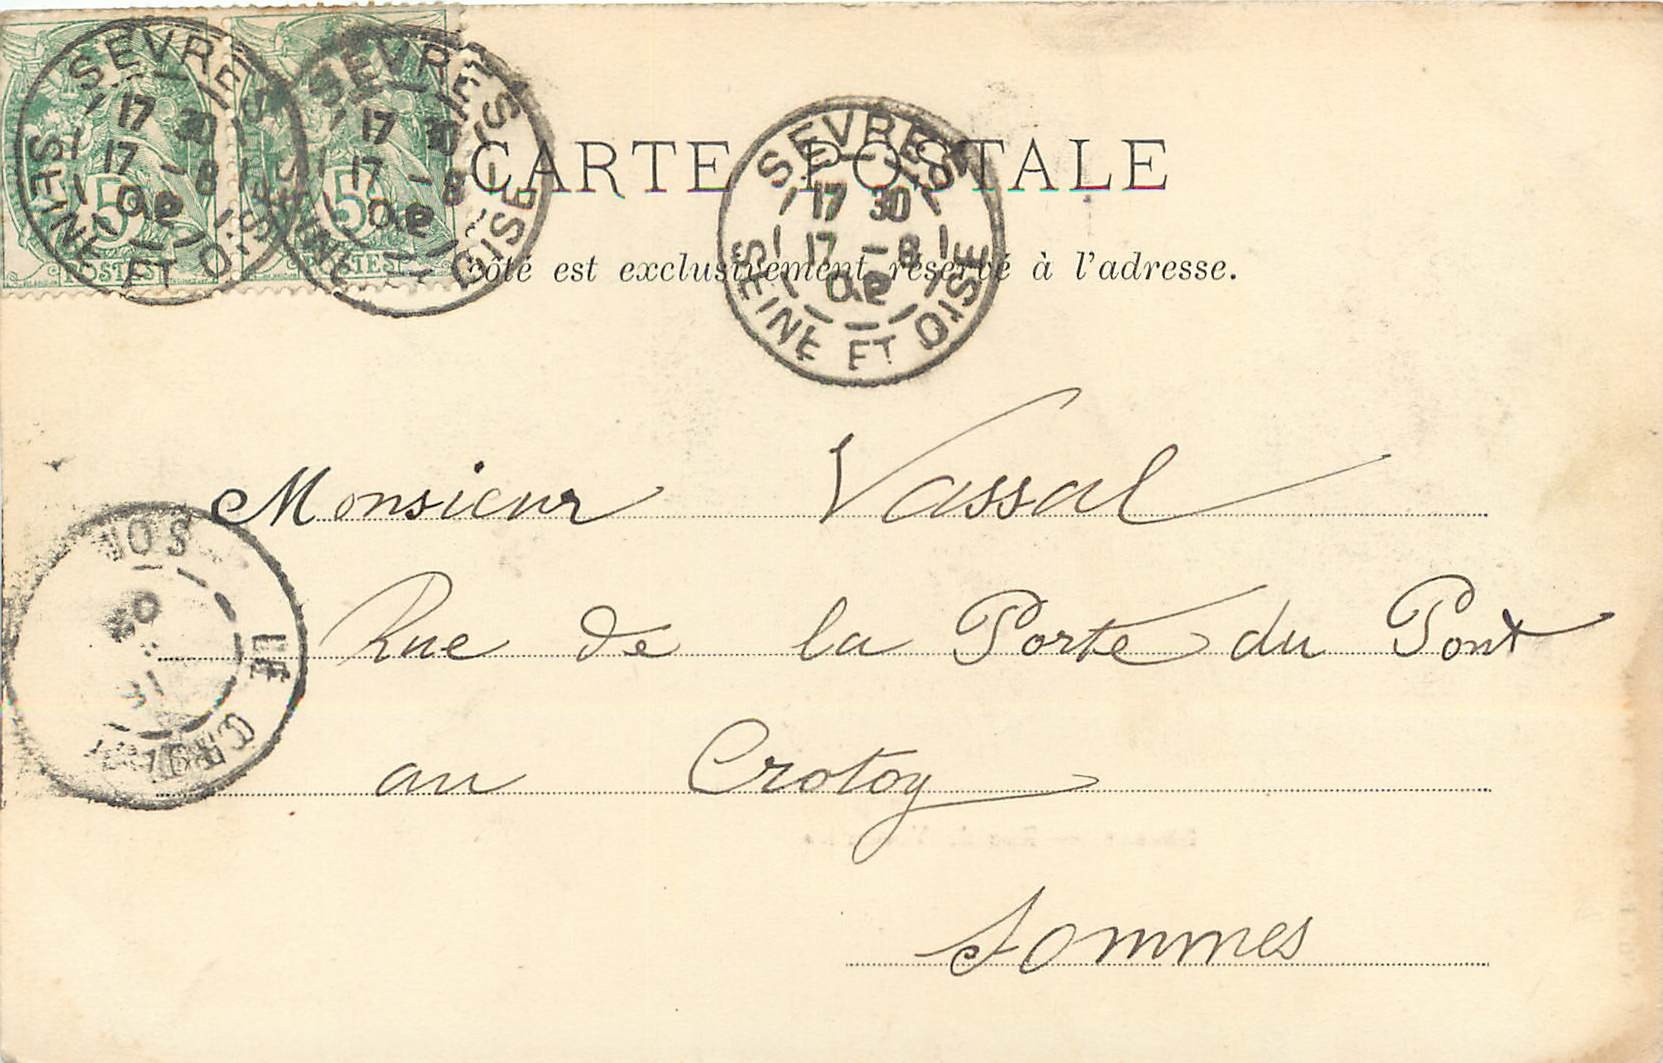 CARTE POSTALE
côté est exclusivement réservé à l'adresse.
5
POSTES
5
POSTES
SEVRES
17 30
17 -8
02
SEINE ET OISE
SEVRES
17 30
17 -8
02
SEINE ET OISE
SEVRES
17 30
17 -8
02
SEINE ET OISE
Monsieur Vassal
Rue de la Porte du Pont
au Crotoy
Sommes
LE CROTOY
02